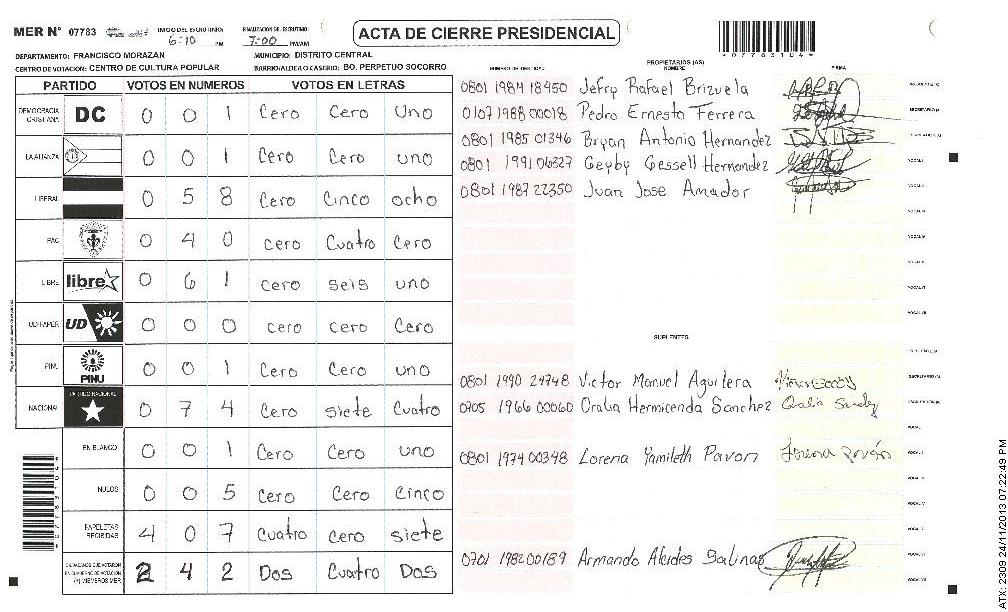 MER N° 07783 INICIO DEL ESCRUTINIO: 6:10 PM FINALIZACION DE ESCRUTINIO: 7:00 PM/AM
ACTA DE CIERRE PRESIDENCIAL
*07783104*
DEPARTAMENTO: FRANCISCO MORAZAN MUNICIPIO: DISTRITO CENTRAL
CENTRO DE VOTACION: CENTRO DE CULTURA POPULAR BARRIO/ALDEA O CASERIO: BO. PERPETUO SOCORRO
PARTIDO VOTOS EN NUMEROS VOTOS EN LETRAS
DEMOCRACIA CRISTIANA DC 0 0 1 Cero Cero Uno
LA ALIANZA 0 0 1 Cero Cero uno
LIBERAL 0 5 8 Cero Cinco ocho
PAC 0 4 0 cero Cuatro Cero
LIBRE libre 0 6 1 cero seis uno
UD-FAPER UD 0 0 0 cero cero Cero
PINU PINU 0 0 1 Cero Cero uno
NACIONAL PARTIDO NACIONAL 0 7 4 Cero siete Cuatro
EN BLANCO 0 0 1 Cero Cero uno
NULOS 0 0 5 Cero Cero Cinco
PAPELETAS RECIBIDAS 4 0 7 Cuatro cero siete
CIUDADANOS QUE VOTARON EN CUADERNO DE VOTACION (+) MIEMBROS MER 2 4 2 Dos Cuatro Dos
PROPIETARIOS (AS)
NUMERO DE IDENTIDAD NOMBRE FIRMA
0801 1984 18450 Jefry Rafael Brizuela PRESIDENTE (A)
0107 1988 00018 Pedro Ernesto Ferrera SECRETARIO (A)
0801 1985 01346 Bryan Antonio Hernandez
0801 1991 06327 Geyby Gessell Hernandez VOCAL I
0801 1987 22350 Juan Jose Amador VOCAL II
VOCAL III
VOCAL IV
VOCAL V
VOCAL VI
VOCAL VII
SUPLENTES
0801 1990 24748 Victor Manuel Aguilera SECRETARIO (A)
0705 1966 00060 Oralia Hermicenda Sanchez
0801 1974 00348 Lorena Yamileth Pavon
0701 1982 00189 Armando Alcides Salinas
ATX: 2309 24/11/2013 07:22:49 PM